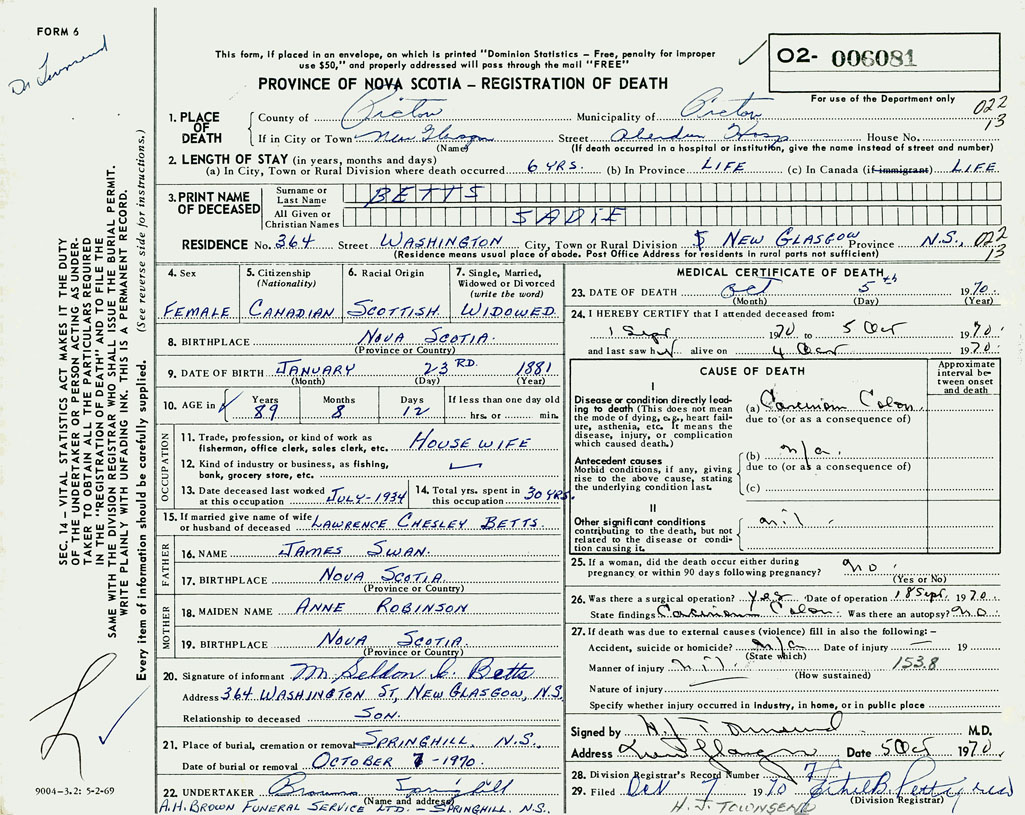 FORM 6
Dr Townsend
This form, if placed in an envelope, on which is printed "Dominion Statistics – Free, penalty for improper
use $50," and properly addressed will pass through the mail "FREE"
02- 006081
PROVINCE OF NOVA SCOTIA – REGISTRATION OF DEATH
For use of the Department only
022
13
1. PLACE OF DEATH
County of Pictou Municipality of Pictou
If in City or Town New Glasgow Street Aberdeen Hosp House No.
(Name) (If death occurred in a hospital or institution, give the name instead of street and number)
2. LENGTH OF STAY (in years, months and days)
(a) In City, Town or Rural Division where death occurred 6 YRS. (b) In Province LIFE (c) In Canada (if immigrant) LIFE
3. PRINT NAME OF DECEASED
Surname or Last Name BETTS
All Given or Christian Names SADIE
RESIDENCE No. 364 Street WASHINGTON City, Town or Rural Division NEW GLASGOW Province N.S., 022
13
(Residence means usual place of abode. Post Office Address for residents in rural parts not sufficient)
4. Sex
FEMALE
5. Citizenship
(Nationality)
CANADIAN
6. Racial Origin
SCOTTISH
7. Single, Married,
Widowed or Divorced
(write the word)
WIDOWED
8. BIRTHPLACE NOVA SCOTIA
(Province or Country)
9. DATE OF BIRTH JANUARY 23RD. 1881
(Month) (Day) (Year)
10. AGE in Years Months Days If less than one day old
89 8 12 hrs. or min.
OCCUPATION
11. Trade, profession, or kind of work as
fisherman, office clerk, sales clerk, etc. HOUSE WIFE
12. Kind of industry or business, as fishing,
bank, grocery store, etc.
13. Date deceased last worked
at this occupation JULY-1934
14. Total yrs. spent in
this occupation 30 YRS.
15. If married give name of wife
or husband of deceased LAWRENCE CHESLEY BETTS.
FATHER
16. NAME JAMES SWAN.
17. BIRTHPLACE NOVA SCOTIA.
(Province or Country)
MOTHER
18. MAIDEN NAME ANNE ROBINSON
19. BIRTHPLACE NOVA SCOTIA.
(Province or Country)
20. Signature of informant M. Seldon L. Betts
Address 364 WASHINGTON ST, NEW GLASGOW, N.S.
Relationship to deceased SON.
21. Place of burial, cremation or removal SPRINGHILL N.S.
Date of burial or removal OCTOBER 7 -1970.
22. UNDERTAKER Browns Springhill
(Name and address)
A.H. BROWN FUNERAL SERVICE LTD. – SPRINGHILL, N.S.
MEDICAL CERTIFICATE OF DEATH
23. DATE OF DEATH Oct 5th 1970.
(Month) (Day) (Year)
24. I HEREBY CERTIFY that I attended deceased from:
1 Sept 1970 to 5 Oct 1970.
and last saw her alive on 4 Oct 1970.
CAUSE OF DEATH
Approximate
interval be-
tween onset
and death
I
Disease or condition directly lead-
ing to death (This does not
mean the mode of dying, e.g., heart fail-
ure, asthenia, etc. It means the
disease, injury, or complication
which caused death.)
(a) Carcinoma Colon
due to (or as a consequence of)
Antecedent causes
Morbid conditions, if any, giving
rise to the above cause, stating
the underlying condition last.
(b) n/a.
due to (or as a consequence of)
(c)
II
Other significant conditions
contributing to the death, but not
related to the disease or condi-
tion causing it.
nil.
25. If a woman, did the death occur either during
pregnancy or within 90 days following pregnancy? no
(Yes or No)
26. Was there a surgical operation? Yes Date of operation 18 Sept 1970.
State findings Carcinoma Colon. Was there an autopsy? no.
27. If death was due to external causes (violence) fill in also the following: –
Accident, suicide or homicide? n/a Date of injury 19
(State which)
Manner of injury nil. 153.8
(How sustained)
Nature of injury
Specify whether injury occurred in industry, in home, or in public place
Signed by H. J. Townsend M.D.
Address New Glasgow Date 5 Oct 1970.
28. Division Registrar's Record Number 7
29. Filed Oct 7 1970 Ethel B. Pettigrew
(Division Registrar)
H. J. TOWNSEND
SEC. 14 – VITAL STATISTICS ACT MAKES IT THE DUTY
OF THE UNDERTAKER OR PERSON ACTING AS UNDER-
TAKER TO OBTAIN ALL THE PARTICULARS REQUIRED
IN THE "REGISTRATION OF DEATH" AND TO FILE THE
SAME WITH THE DIVISION REGISTRAR WHO SHALL ISSUE THE BURIAL PERMIT.
WRITE PLAINLY WITH UNFADING INK. THIS IS A PERMANENT RECORD.
Every item of information should be carefully supplied. (See reverse side for instructions.)
9004-3.2: 5-2-69